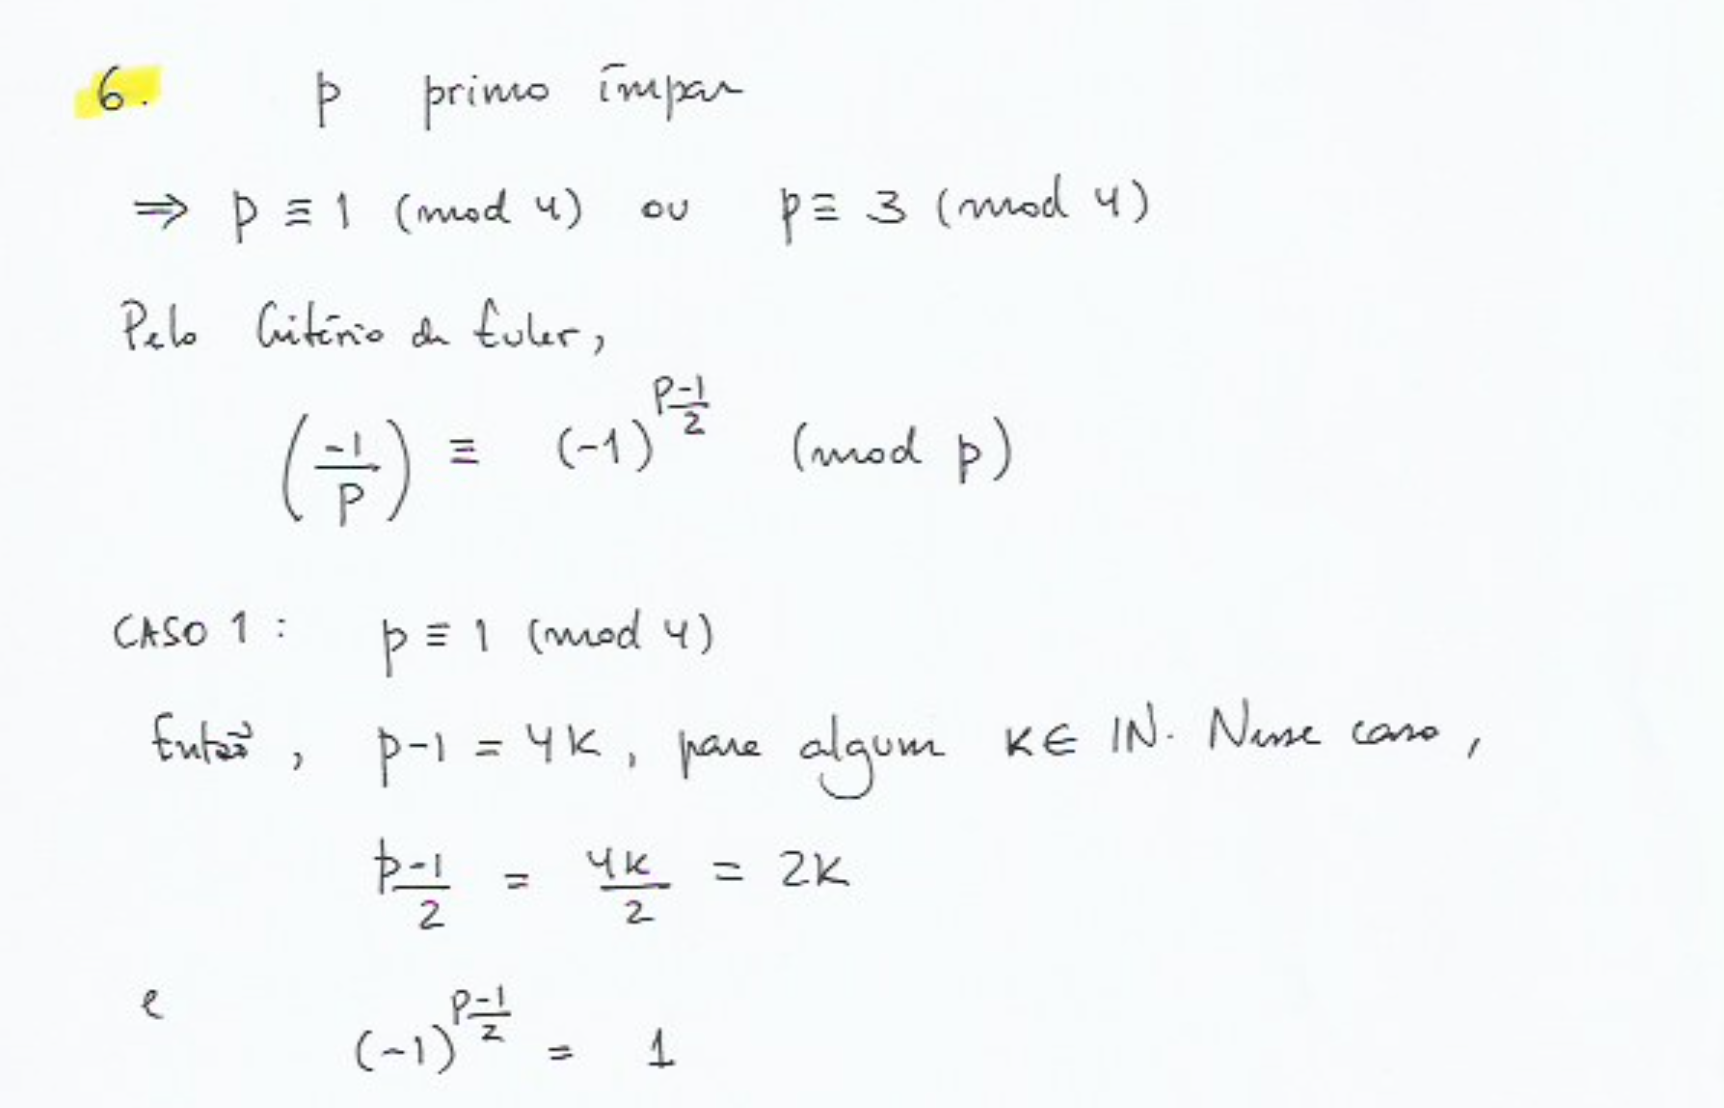 6. p primo ímpar
⇒ p ≡ 1 (mod 4) ou p ≡ 3 (mod 4)
Pelo Critério de Euler,
(-1/p) ≡ (-1)^((p-1)/2) (mod p)
CASO 1: p ≡ 1 (mod 4)
Então, p-1 = 4K, para algum K ∈ IN. Nesse caso,
(p-1)/2 = 4K/2 = 2K
e
(-1)^((p-1)/2) = 1